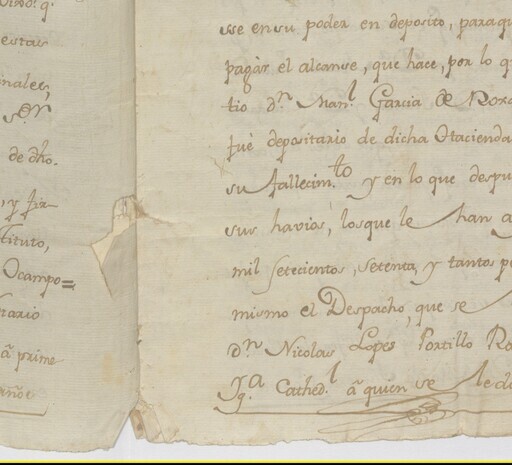 estas
nales,
S.or
de dho.
, y fir-
tituto,
Ocampo=
tario
â prime
sse en su poder en deposito, para q
pagàr el alcanse, que hace, por lo q
tio d.n Man.l Garcia de
fuè depositario de dicha Hacienda
su fallecim.to y en lo que despu
sus havios, los que le han
mil setecientos, setenta, y tantos p
mismo el Despacho, que se
d.n Nicolas Lopes Portillo
Yg.a Cathed.l â quièn se le d